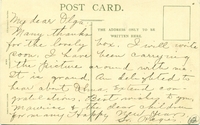 POST CARD.
THE ADDRESS ONLY TO BE
WRITTEN HERE.
My dear Olga
Many thanks
for the lovely box. I will write
soon. I have been carrying
the picture around with
It is grand. Am delighted to
hear about
Best wishes to your
and the dear children
for a very Happy New Year